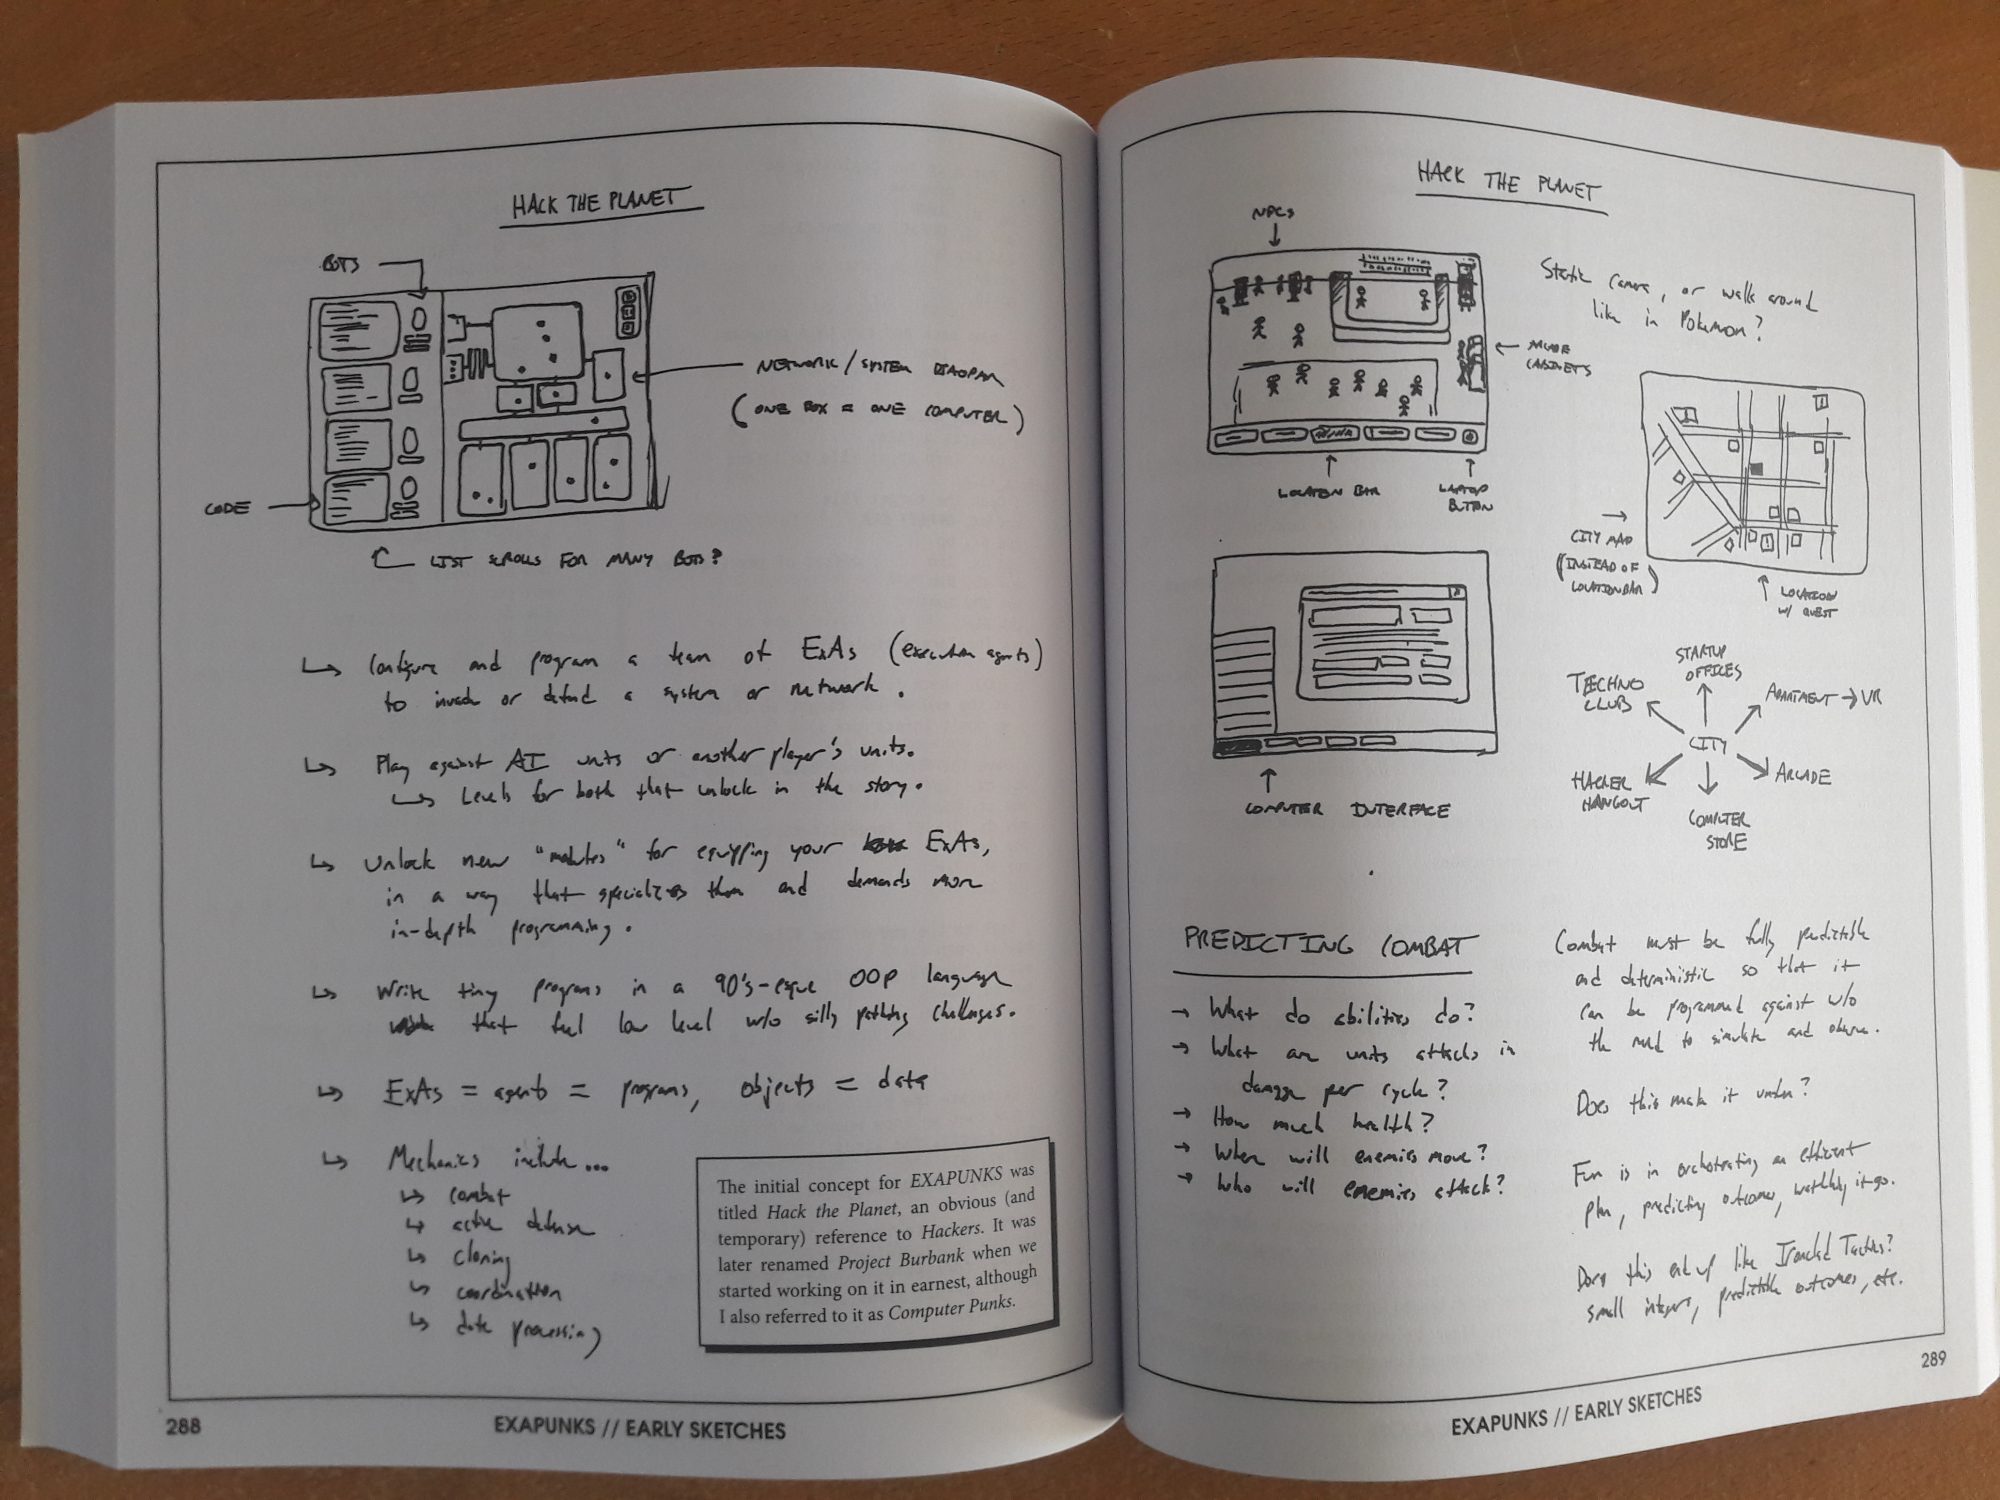 HACK THE PLANET
BOTS
NETWORK / SYSTEM DIAGRAM
(ONE BOX = ONE COMPUTER)
CODE
LIST SCROLLS FOR MANY BOTS?
↳ Configure and program a team of ExAs (execution agents)
to invade or defend a system or network.
↳ Play against AI units or another player's units.
↳ Levels for both that unlock in the story.
↳ Unlock new "modules" for equipping your ExAs,
in a way that specializes them and demands more
in-depth programming.
↳ Write tiny programs in a 90's-esque OOP language
that feel low level w/o silly pathing challenges.
↳ ExAs = agents = programs, objects = data
↳ Mechanics include...
↳ combat
↳ active defense
↳ cloning
↳ coordination
↳ data processing
The initial concept for EXAPUNKS was
titled Hack the Planet, an obvious (and
temporary) reference to Hackers. It was
later renamed Project Burbank when we
started working on it in earnest, although
I also referred to it as Computer Punks.
288
EXAPUNKS // EARLY SKETCHES
HACK THE PLANET
NPCS
Static camera, or walk around
like in Pokemon?
CABINETS
LOCATION BAR
LAPTOP
BUTTON
→
CITY MAP
(INSTEAD OF
LOCATION BAR)
LOCATION
W/ QUEST
COMPUTER INTERFACE
STARTUP
OFFICES
TECHNO
CLUB
APARTMENT → VR
CITY
HACKER
HANGOUT
ARCADE
COMPUTER
STORE
PREDICTING COMBAT
→ What do abilities do?
→ What are units attacks in
damage per cycle?
→ How much health?
→ When will enemies move?
→ Who will enemies attack?
Combat must be fully predictable
and deterministic so that it
can be programmed against w/o
the need to simulate and observe.
Does this make it unfun?
Fun is in orchestrating an efficient
plan, predicting outcomes, watching it go.
Does this end up like Ironclad Tactics?
small integers, predictable outcomes, etc.
289
EXAPUNKS // EARLY SKETCHES